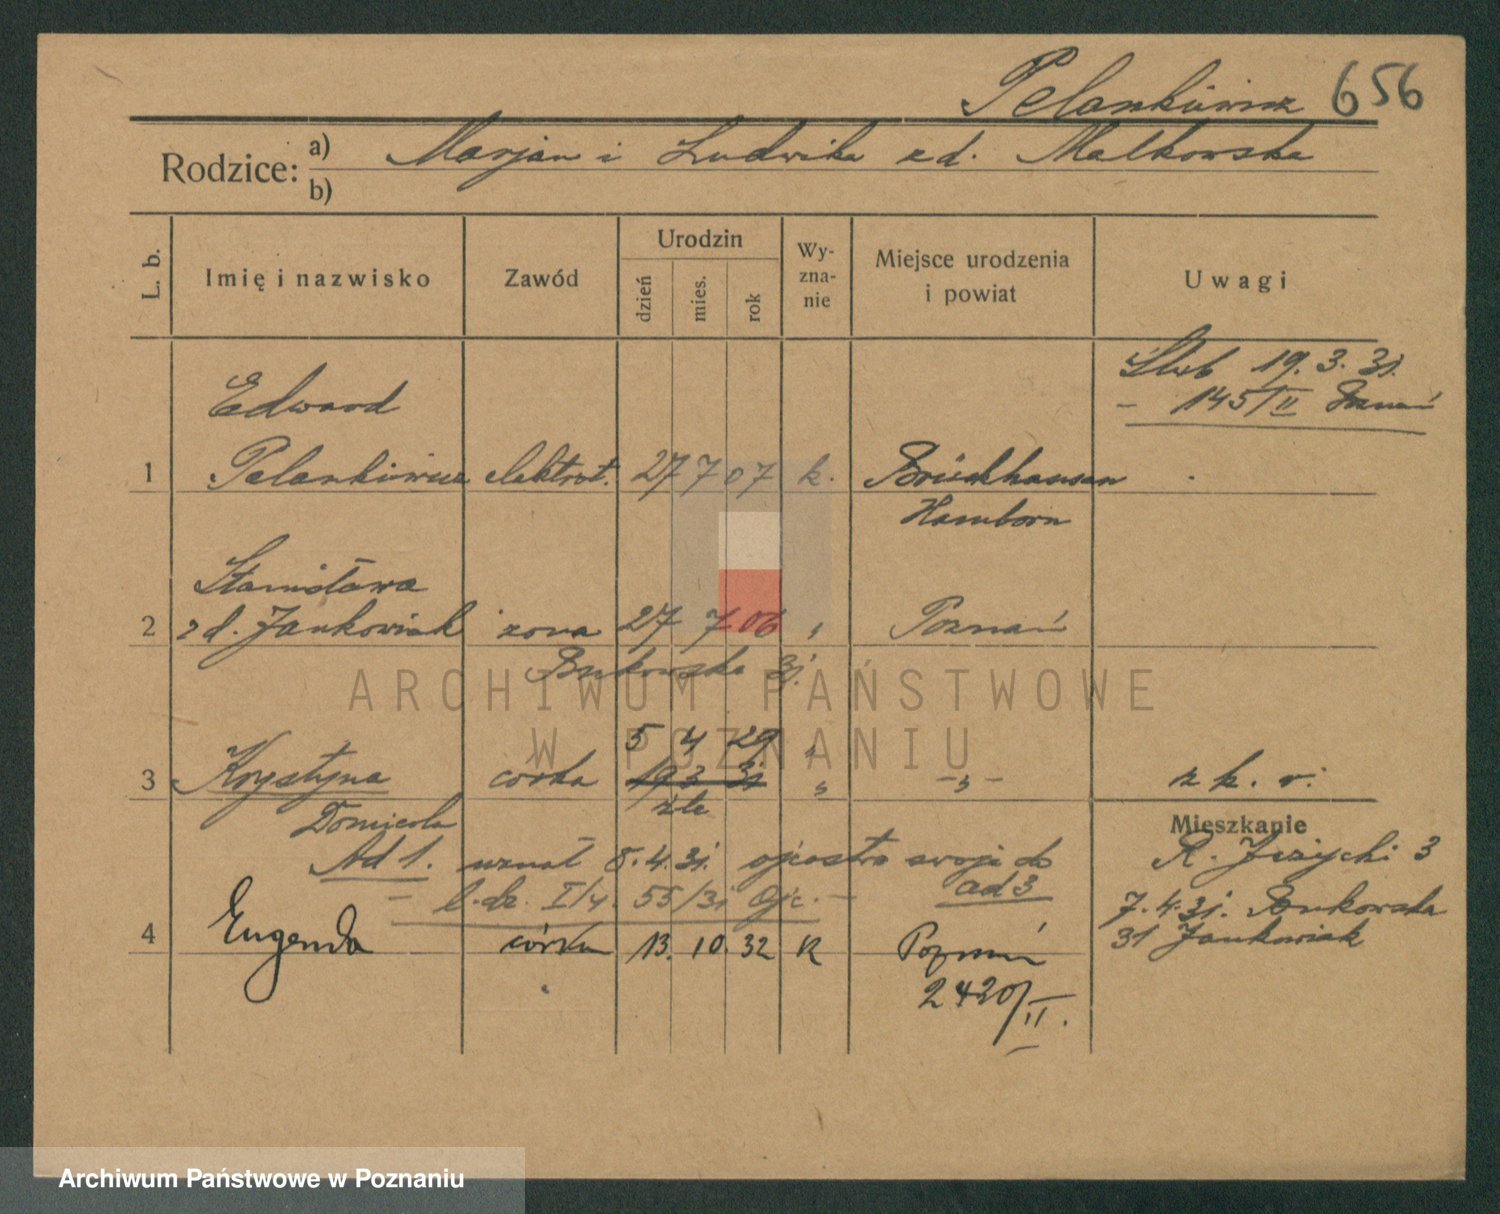 Pelankiewicz 656
Rodzice: a) Marjan i Ludwika z d. Malkowska
b)
L. b. Imię i nazwisko Zawód Urodzin dzień mies. rok Wy-zna-nie Miejsce urodzenia i powiat Uwagi
Ślub 19. 3. 31.
– 145/II Poznań
Edward
1 Pelankiewicz elektrot. 27 7 07 k. Bruckhausen
Hamborn
Stanisława
2 z d. Jankowiak żona 27 7 06 " Poznań
Bukowska 31.
5 4 29 "
3 Krystyna córka 19 3 31 " –"– z k. r.
źle
Mieszkanie
R. Jeżycki 3
Ad 1. uznał 8. 4. 31. ojcostwo swoje do
ad 3
– l. dz. I/4. 55/31 Ojc. –
7. 4. 31. Bukowska
31 Jankowiak
4 Eugenia córka 13. 10. 32 k Poznań
2420/II.
ARCHIWUM PAŃSTWOWE
W POZNANIU
Archiwum Państwowe w Poznaniu